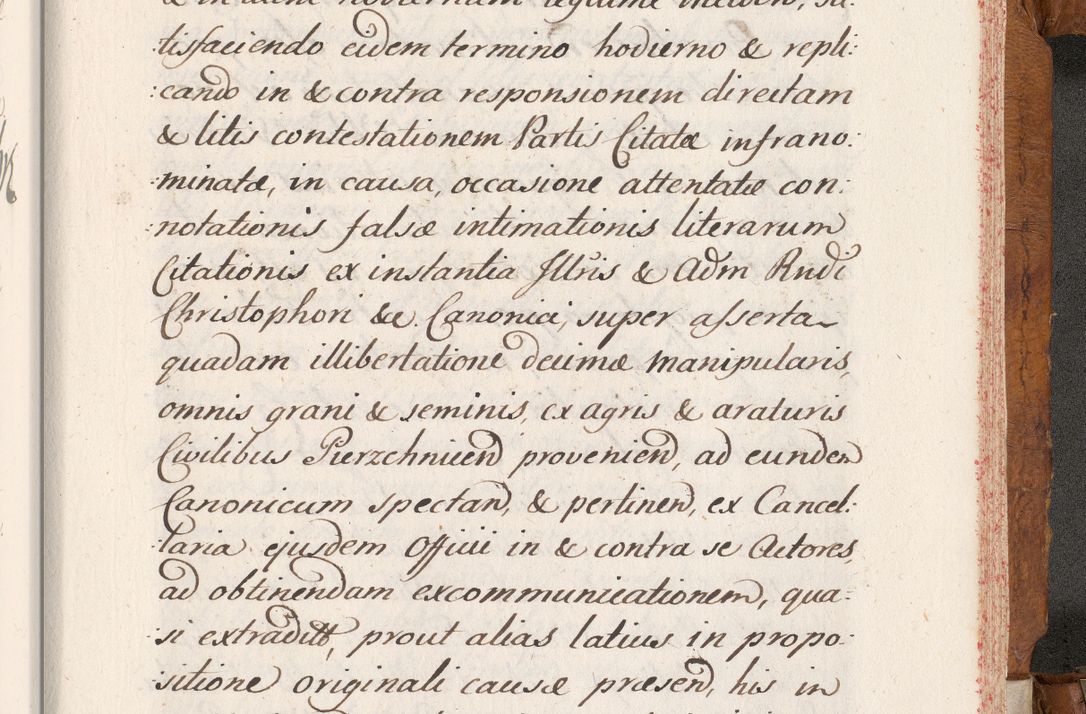 & in diem hodiernam legitime inciden, sa:
tisfaciendo eidem termino hodierno & repli:
:cando in & contra responsionem directam
& litis contestationem Partis Citatæ infrano:
:minatæ, in causa, occasione attentatæ con:
:notationis falsæ intimationis literarum
Citationis ex instantia Jllris & Adm Rndi
Christophori &c. Canonici, super asserta
quadam illibertatione decimæ manipularis,
omnis grani & seminis, ex agris & araturis
Civilibus Pierzchnicen provenien, ad eundem
Canonicum spectan, & pertinen, ex Cancel:
:laria ejusdem Officii in & contra se Actores,
ad obtinendam excommunicationem, qua:
:si extraditt, prout alias latius in propo:
:sitione originali causæ præsen, his in